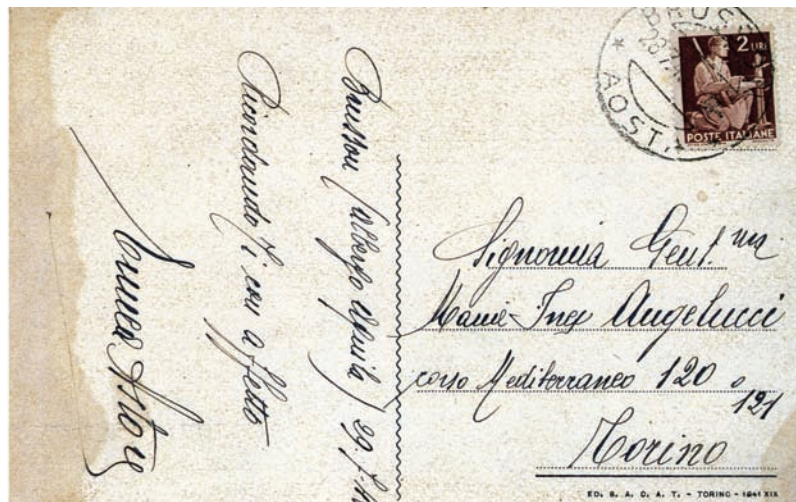 Brusson (albergo aquila) 29.7.
Ricordandoti con affetto
BRUSS
AOSTA
2 LIRE
POSTE ITALIANE
Signorina Gent.ma
Angelucci
corso Mediterraneo 120 o 121
Torino
ED. S. A. C. A. T. - TORINO - 1941 XIX